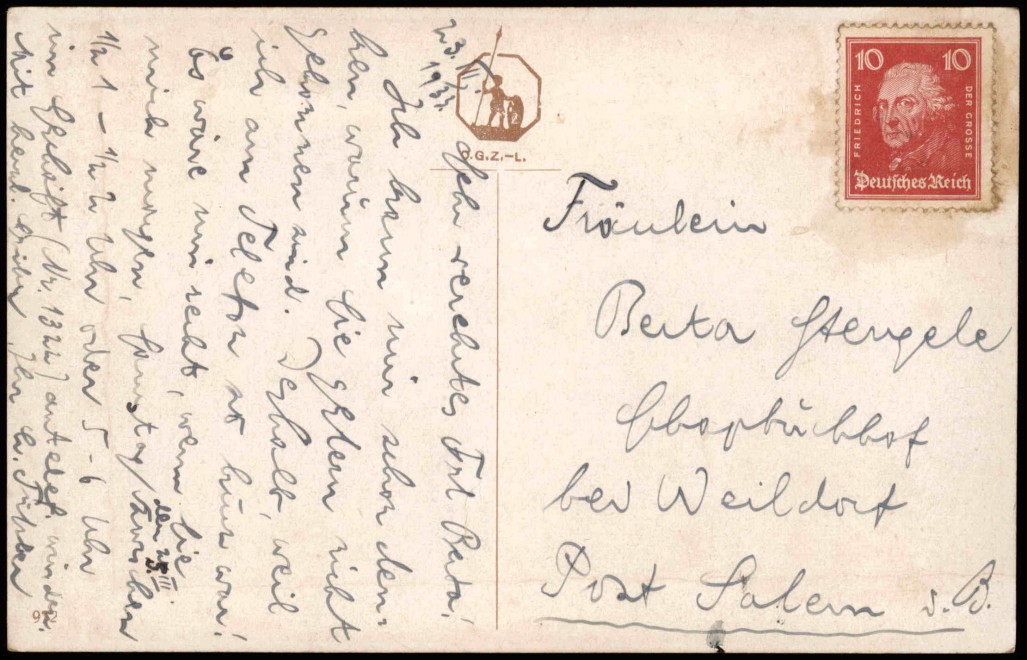 23. III. 1933
Sehr verehrtes Frl. Berta!
Ich kann mir schon den-
ken, warum Sie gestern nicht
gekommen sind. Deshalb, weil
ich am Telefon so kurz war!
Es wäre mir recht, wenn Sie
mich morgen, Samstag, zwischen
den 25. III.
½ 1 – ½ 2 Uhr oder 5–6 Uhr
im Geschäft (Nr. 1322) antelef. würden.
Mit herzl. Ihr
C.G.Z.-L.
972
10 10
FRIEDRICH DER GROSSE
Deutsches Reich
Fräulein
Berta Stengele
bei Weildorf
Post Salem i. B.